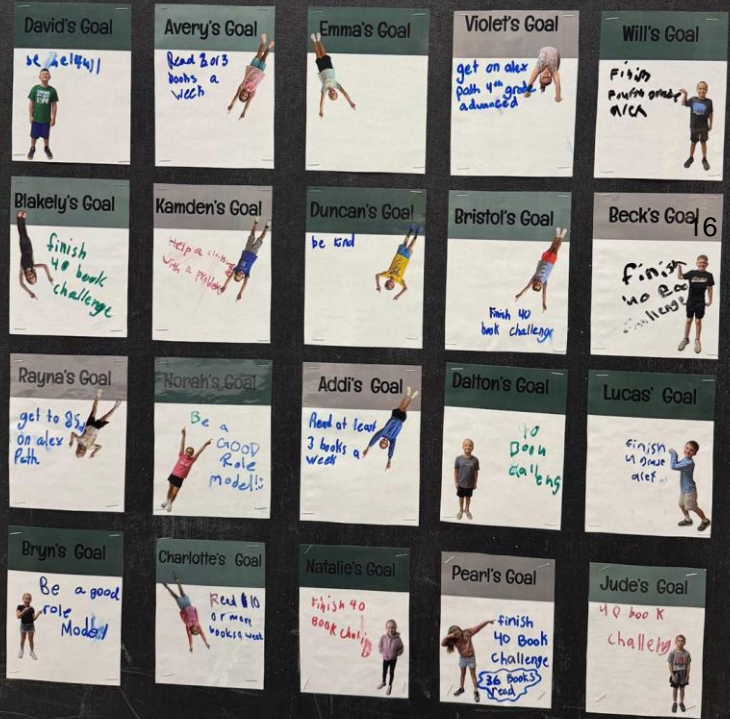 David's Goal
be helfull
Avery's Goal
Read 2 or 3
books a
week
Emma's Goal
Violet's Goal
get on alex
path 4th grade
advanced
Will's Goal
Finish
fourth grade
Blakely's Goal
finish
40 book
challenge
Kamden's Goal
Help a
with a problem
Duncan's Goal
be kind
Bristol's Goal
finish 40
book challenge
Beck's Goal
16
finish
40 Boo
challenge
Rayna's Goal
get to 85
on alex
Path
Norah's Goal
Be a
GOOD
Role
Model!
Addi's Goal
Read at least
3 books a
week
Dalton's Goal
40
Book
Lucas' Goal
finish
4 Grade
Bryn's Goal
Be a good
role
Model
Charlotte's Goal
Read 10
or more
books a week
Natalie's Goal
finish 40
BOOK
Pearl's Goal
finish
40 Book
Challenge
36 Books
read
Jude's Goal
40 book
challeng